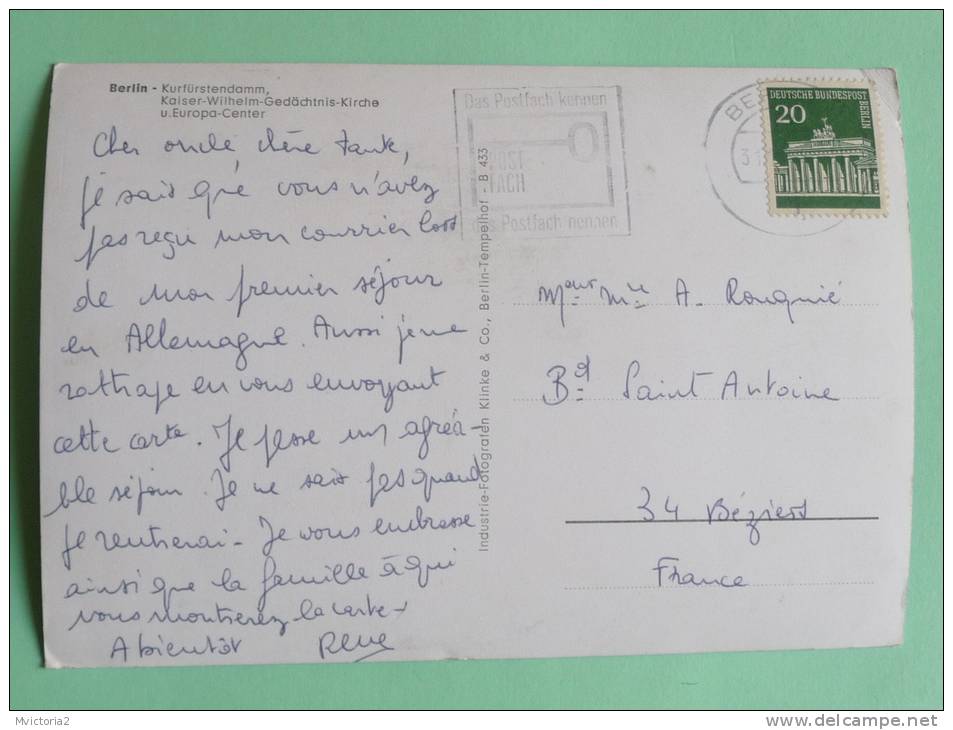 Berlin - Kurfürstendamm,
Kaiser-Wilhelm-Gedächtnis-Kirche
u. Europa-Center
Cher oncle, chère tante,
je sais que vous n'avez
pas reçu mon courrier lors
de mon premier séjour
en Allemagne. Aussi je me
rattrape en vous envoyant
cette carte. Je passe un agréa-
ble séjour. Je ne sais pas quand
je rentrerai - Je vous embrasse
ainsi que la famille à qui
vous montrerez la carte -
A bientôt René
Industrie-Fotografen Klinke & Co., Berlin-Tempelhof . B 433
Das Postfach kennen
POST
FACH
das Postfach nennen
BE
3
DEUTSCHE BUNDESPOST
BERLIN
20
Mr et Mme A. Rouquié
Bd Saint Antoine
34 Béziers
France
Mvictoria2
delcampe.net